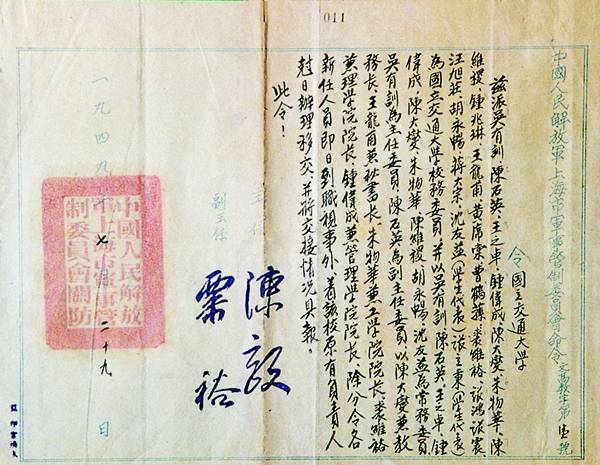 011
中國人民解放軍上海市軍事管制委員會命令 文高教字第伍號
令國立交通大學
茲派吳有訓、陳石英、王之卓、鍾偉成、陳大燮、朱物華、陳
維稷、鍾兆琳、王龍甫、黃席棠、曹鶴蓀、裘維裕、張鴻、張震
汪旭莊、胡永暢、蔣大宗、沈友益(學生代表)張立秉(學生代表)
為國立交通大學校務委員,并以吳有訓、陳石英、王之卓、鍾
偉成、陳大燮、朱物華、陳維稷、胡永暢、沈友益為常務委員
吳有訓為主任委員,陳石英為副主任委員,以陳大燮兼教
務長,王龍甫兼秘書長,朱物華兼工學院院長,裘維裕
兼理學院院長,鍾偉成兼管理學院院長,除分令各
新任人員即日到職視事外,着該校原有負責人
尅日辦理移交,并將交接情况具報。
此令!
主任 陳毅
副主任 粟裕
一九四九年七月二十九日
中國人民解放
軍上海市軍事管
制委員會關防